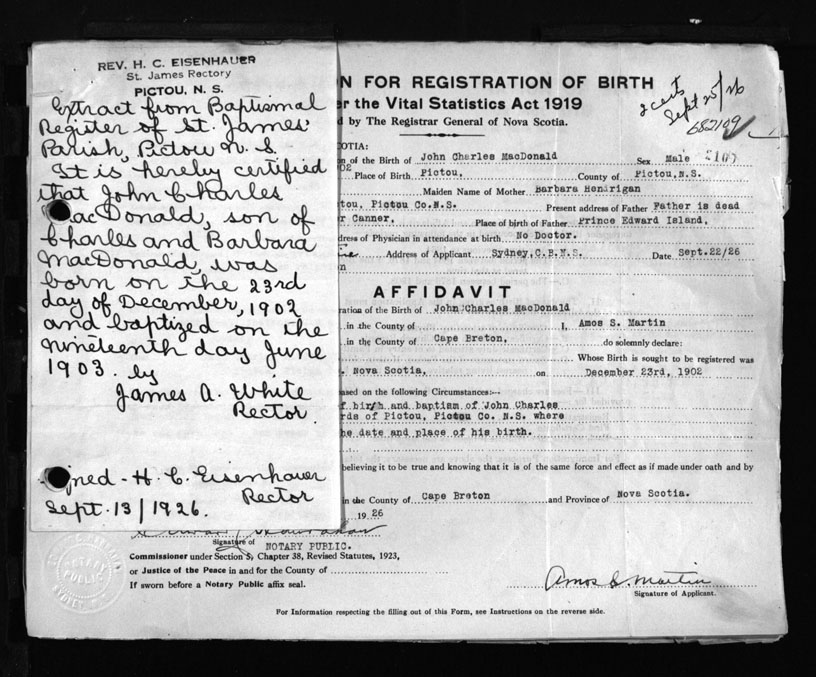 REV. H. C. EISENHAUER
St. James Rectory
PICTOU, N. S.
Extract from Baptismal
Register of St. James'
Parish, Pictou N. S.
It is hereby certified
that John Charles
MacDonald, son of
Charles and Barbara
MacDonald, was
born on the 23rd
day of December, 1902
and baptized on the
nineteenth day June
1903. by
James A. White
Rector.
Signed - H. C. Eisenhauer
Rector
Sept. 13/1926.
N FOR REGISTRATION OF BIRTH
er the Vital Statistics Act 1919
d by The Registrar General of Nova Scotia.
2 certs
Sept 25/26
682109
COTIA:
n of the Birth of John Charles MacDonald Sex Male 2109
02 Place of Birth Pictou, County of Pictou, N.S.
Maiden Name of Mother Barbara Henirigan
tou, Pictou Co.N.S. Present address of Father Father is dead
r Canner. Place of birth of Father Prince Edward Island.
dress of Physician in attendance at birth No Doctor.
Address of Applicant Sydney, C.B.N.S. Date Sept.22/26
n
AFFIDAVIT
ration of the Birth of John Charles MacDonald
in the County of I, Amos S. Martin
in the County of Cape Breton, do solemnly declare:
Whose Birth is sought to be registered was
. Nova Scotia, on December 23rd, 1902
ased on the following Circumstances:--
f birth and baptism of John Charles
rds of Pictou, Pictou Co. N.S. where
he date and place of his birth.
believing it to be true and knowing that it is of the same force and effect as if made under oath and by
in the County of Cape Breton and Province of Nova Scotia.
1926
Signature of NOTARY PUBLIC.
Commissioner under Section 8, Chapter 38, Revised Statutes, 1923,
or Justice of the Peace in and for the County of
If sworn before a Notary Public affix seal.
NOTARY PUBLIC
Amos S. Martin
Signature of Applicant.
For Information respecting the filling out of this Form, see Instructions on the reverse side.